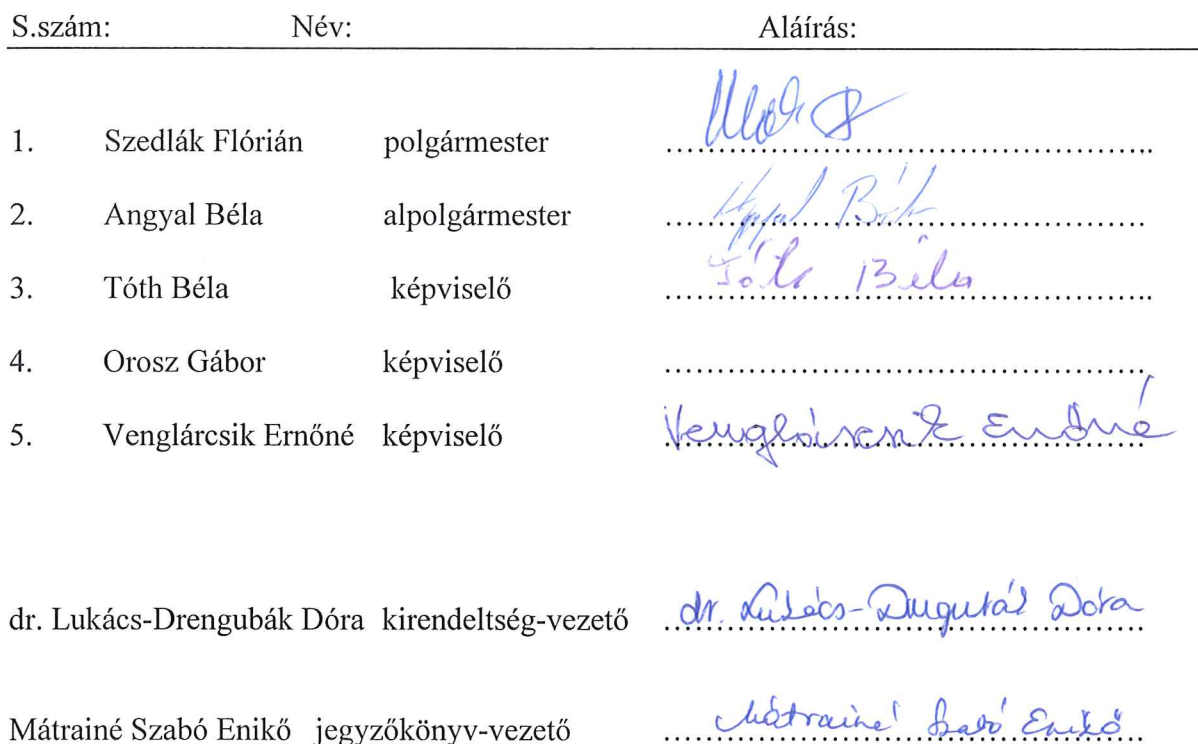 S.szám: Név: Aláírás:
1. Szedlák Flórián polgármester ........................................
2. Angyal Béla alpolgármester Angyal Béla
3. Tóth Béla képviselő Tóth Béla
4. Orosz Gábor képviselő ........................................
5. Venglárcsik Ernőné képviselő Venglárcsik Ernőné
dr. Lukács-Drengubák Dóra kirendeltség-vezető dr. Lukács-Drengubák Dóra
Mátrainé Szabó Enikő jegyzőkönyv-vezető Mátrainé Szabó Enikő